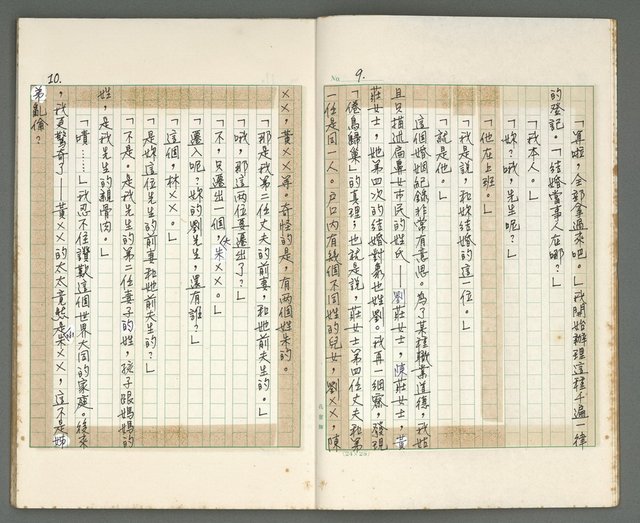 No. 9.
「算啦，全部拿過來吧。」我開始辦理這種千遍一律
的登記。「結婚當事人在哪？」
「我本人。」
「妳？哦，先生呢？」
「他在上班。」
「我是說，和妳結婚的這一位。」
「就是他。」
這個婚姻紀錄非常有意思。為了某種職業道德，我姑
且只描述偏鼻女市民的姓氏——劉莊女士，陳莊女士，黃
莊女士，她第四次的結婚對象也姓劉。我再一細察，發現
「倦鳥歸巢」的真理，也就是說，莊女士第四任丈夫和第
一任是同一人。戶口內有幾個不同姓的兒女，劉××，陳
(24×25)
10.
××，黃××再。奇怪的是，有兩個姓朱的。
「那是我第二位丈夫的前妻，和她前夫生的。」
「哦，那這兩位要遷出了？」
「不，只遷出一個，朱××。」
「遷入呢？妳的劉先生，還有誰？」
「這個，林××。」
「是妳這位先生的前妻和她前夫生的？」
「不是。是我先生的第二位妻子的姓，孩子跟媽媽的
姓，是我先生的親骨肉。」
「嘖……」我忍不住讚歎這個世界大同的家庭。後來
，我更驚奇了——黃××的太太竟然是朱××，這不是姊
弟亂倫？